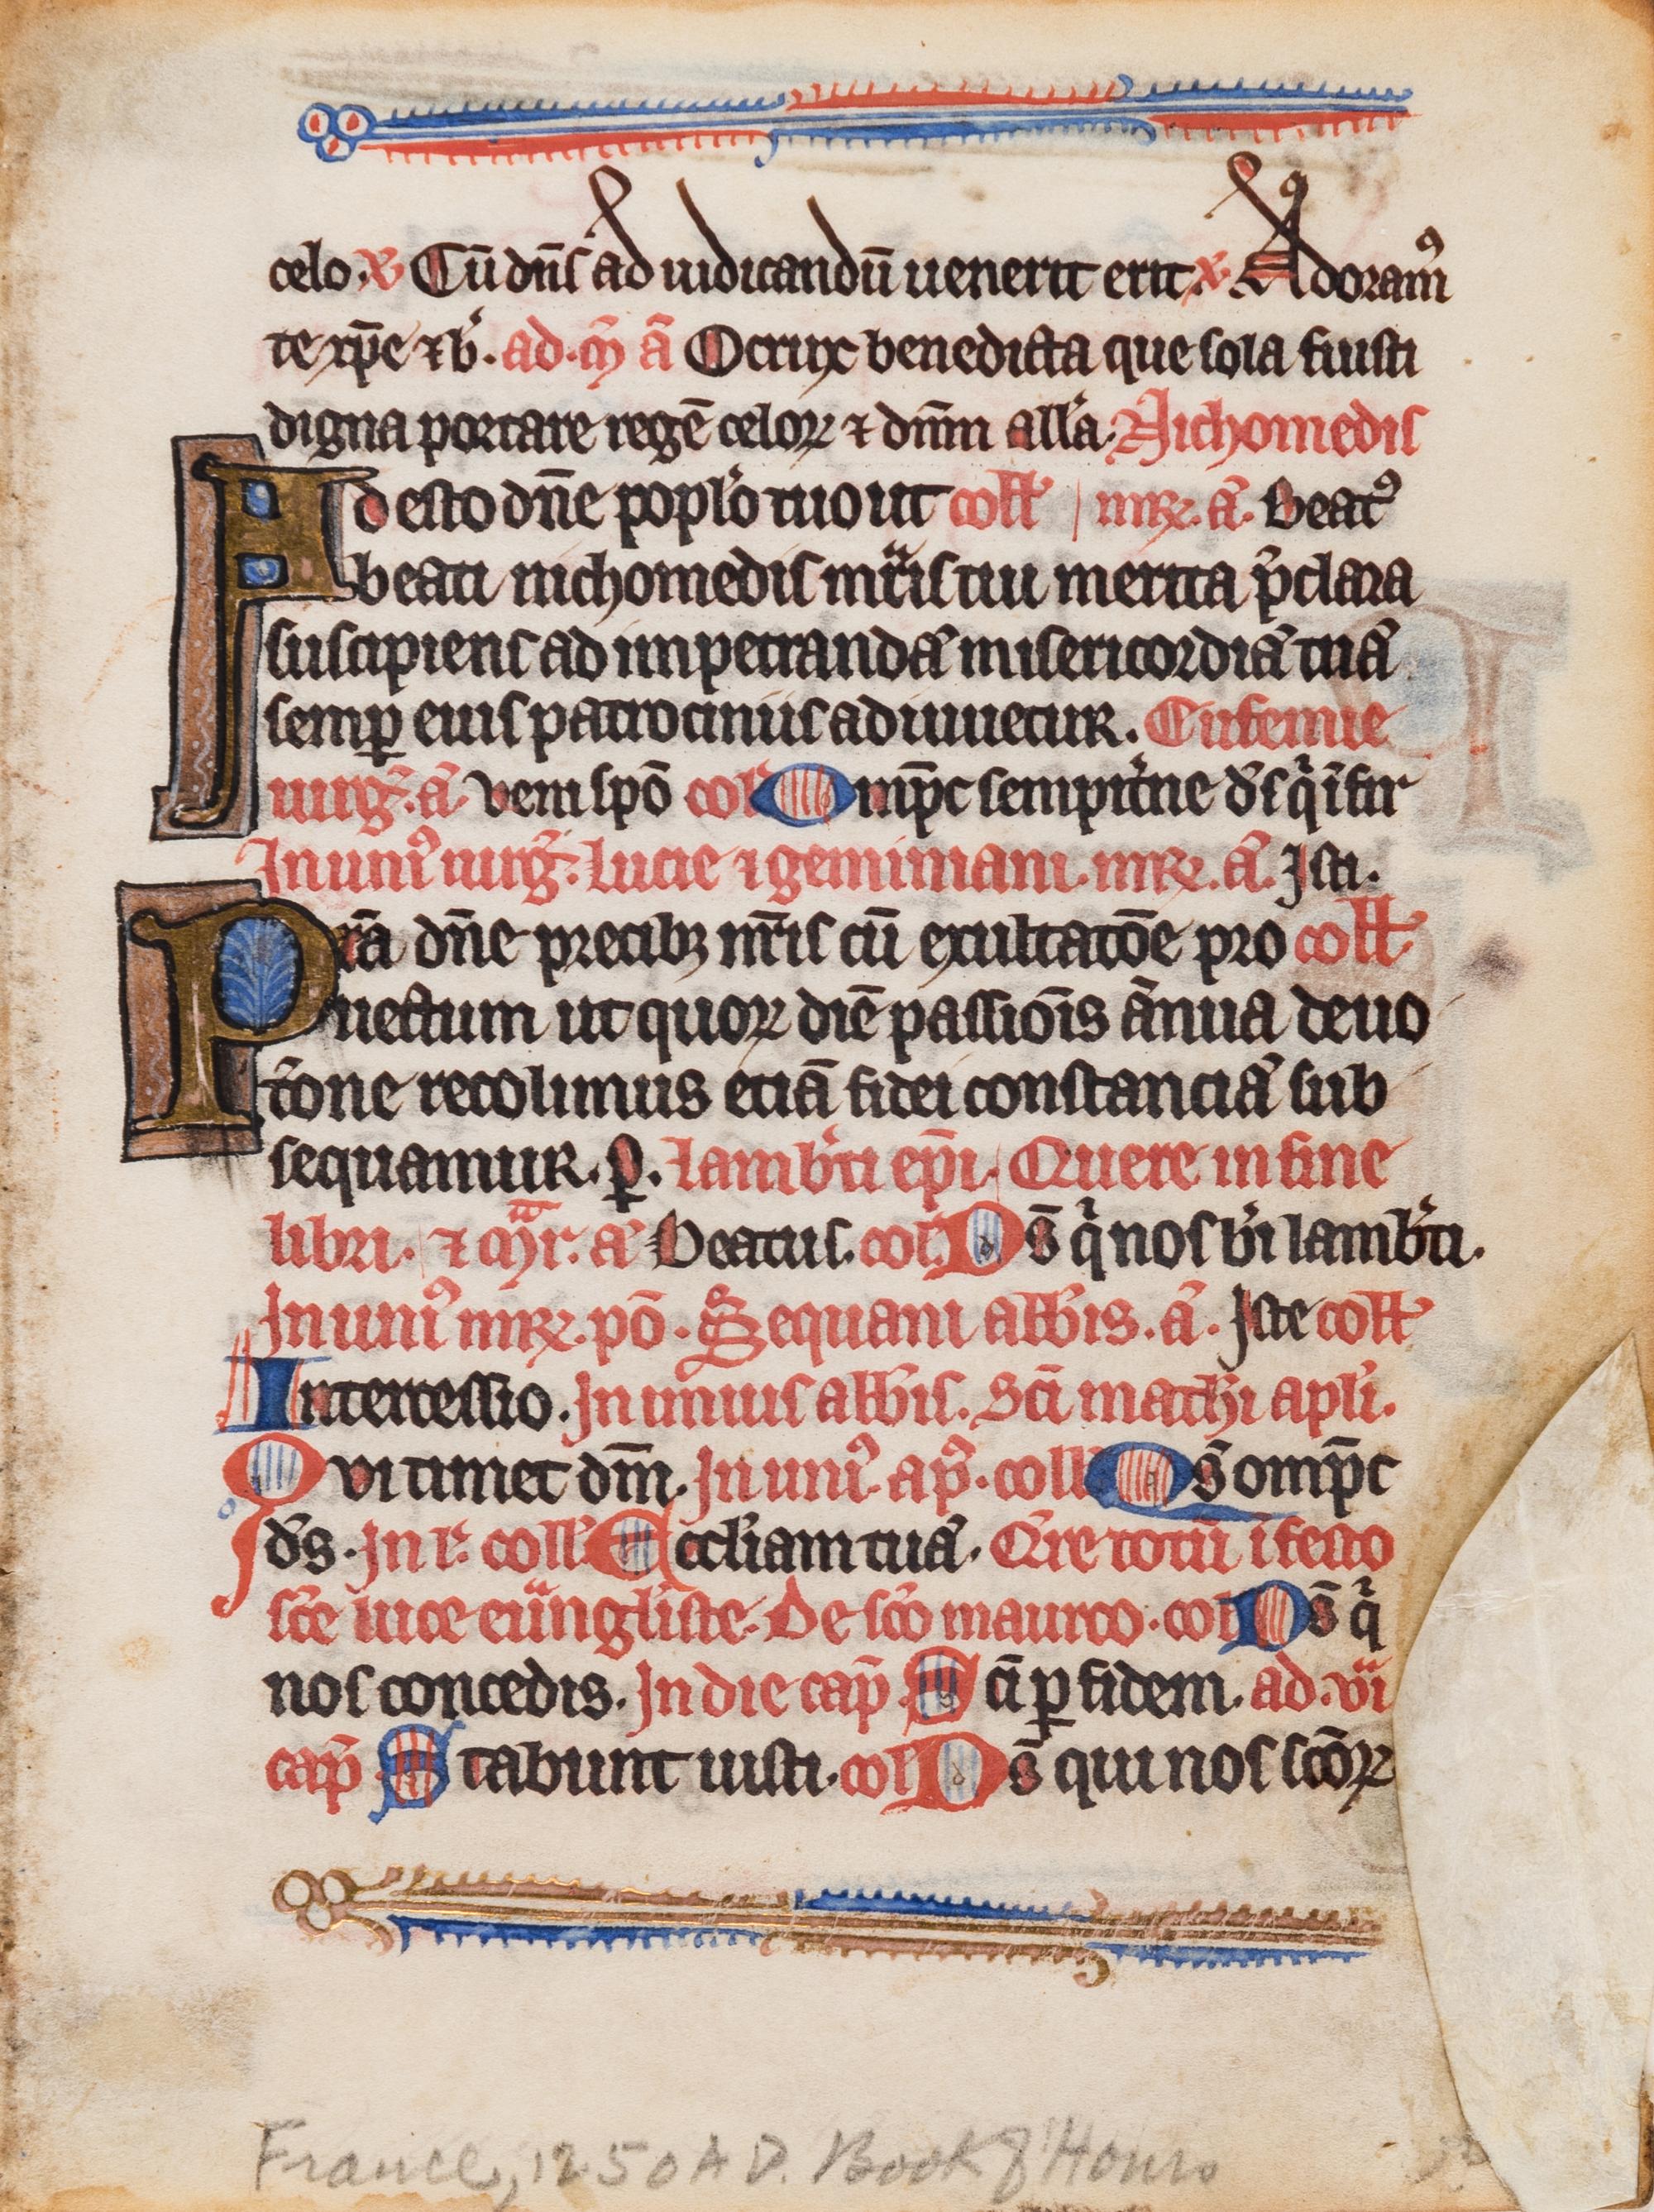 celo. ꝟ Cū dn̄s ad iudicandū uenerit erit. ꝟ. Adoramꝰ
te xp̄e ⁊ b̓. ad. m̄ ā O crux benedicta que sola fuisti
digna portare regē celoꝝ ⁊ dn̄m all̓a. Nichomedis
Adesto dn̄e popl̓o tuo ut coll̓ | mr̄. ā. Beatꝰ
beati nichomedis mr̄is tui merita p̄clara
suscipiens ad impetrandā misericordiā tuā
semꝑ eius patrociniis adiuuetur. Eufemie
uirg̓. ā. veni spō col̓ Omp̄c sempit̓ne d̓s q̓ īfir
In uniꝰ uirg̓. Lucie ⁊ geminiani. mr̄. ā. Isti.
Pr̄a dn̄e precibꝫ mr̄is cū exultatōe pro coll̓
uectum ut quoꝝ diē passiōis ānua deuo
t̄one recolimus etiā fidei constanciā sub
sequamur. ꝑ. Lamb̓ti ep̄i. Quere in fine
libri. ⁊ m̄r. ā Beatus. col̓. Ds̄ q̓ nos b̓i lamb̓ti.
In uniꝰ mr̄. pō. Sequani abb̓is. ā. Iste coll̓
Intercessio. In unius abb̓is. Sc̄i mathi apl̓i.
Qui timet dm̄. In uniꝰ ap̓. coll̓ Qs̄ omp̄c
d̓s. In r̓. coll̓. Eccl̓iam tuā. Q̓re totū ī festo
sc̄e luce euāngl̓iste. De sc̄o maurco. col̓ Ds̄ q̓
nos concedis. In die cap̄. Sc̄i ꝑ fidem. ad. vi
cap̄ Stabunt iusti. col̓ Ds̄ qui nos sc̄oꝝ
France, 1250 A D. Book of Hours